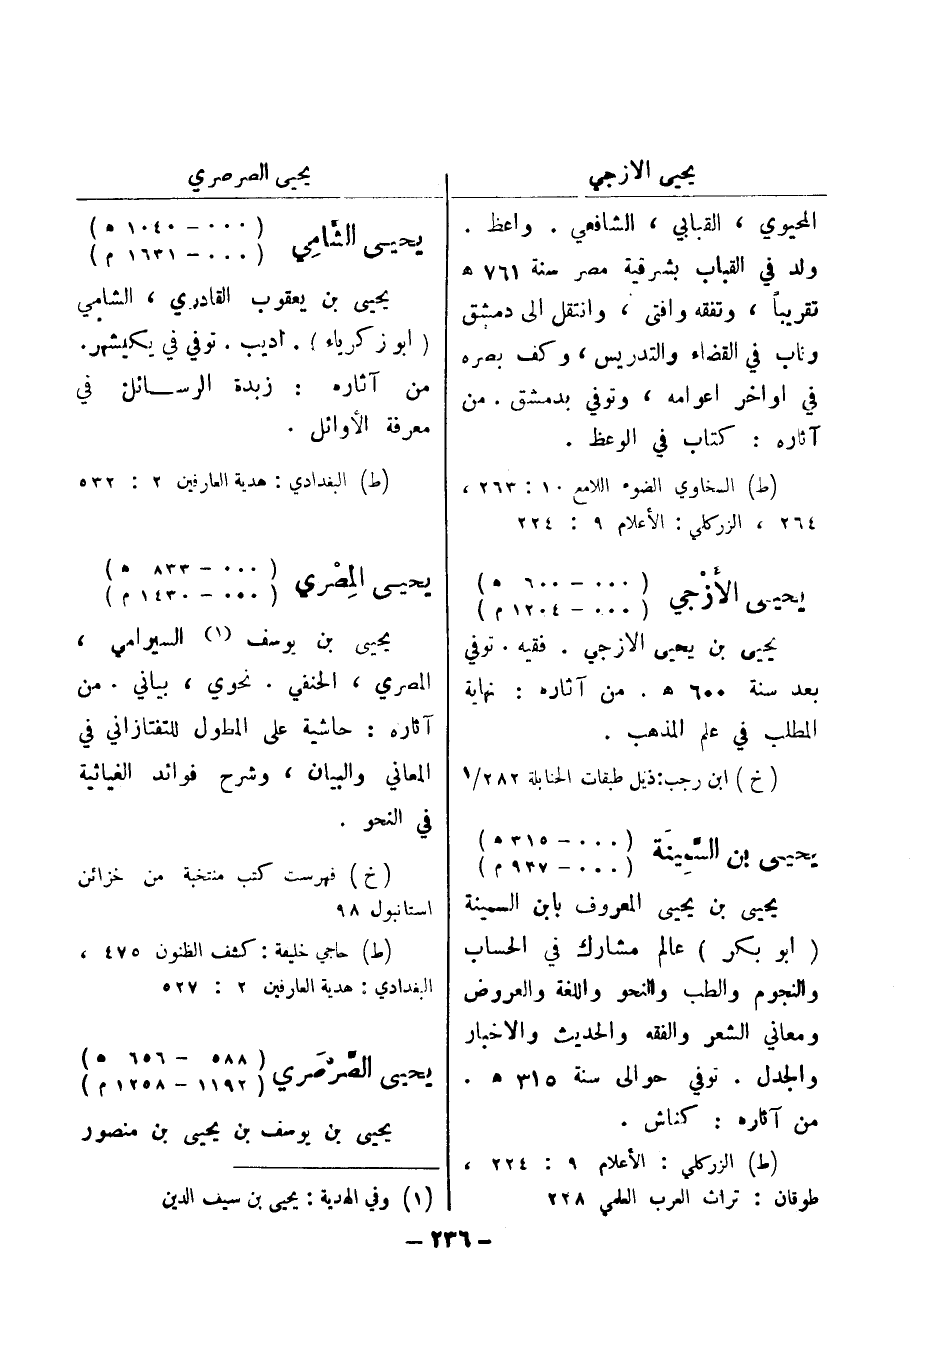 يحيى الازجي
المحيوي ، القبابي ، الشافعي . واعظ .
ولد في القباب بشرقية مصر سنة ٧٦١ هـ
تقريباً ، وتفقه وافتى ، وانتقل الى دمشق
وناب في القضاء والتدريس ، وكف بصره
في اواخر اعوامه ، وتوفي بدمشق . من
آثاره : كتاب في الوعظ .
(ط) السخاوي الضوء اللامع ١٠ : ٢٦٣ ،
٢٦٤ ، الزركلي : الأعلام ٩ : ٢٢٤
يحيى الأَزْجي ( ٠٠٠ - ٦٠٠ هـ )
( ٠٠٠ - ١٢٠٤ م )
يحيى بن يحيى الازجي . فقيه . توفي
بعد سنة ٦٠٠ هـ . من آثاره : نهاية
المطلب في علم المذهب .
( خ ) ابن رجب: ذيل طبقات الحنابلة ١/٢٨٢
يحيى بن السَّمِينَة ( ٠٠٠ - ٣١٥ هـ )
( ٠٠٠ - ٩٢٧ م )
يحيى بن يحيى المعروف بابن السمينة
( ابو بكر ) عالم مشارك في الحساب
والنجوم والطب والنحو واللغة والعروض
ومعاني الشعر والفقه والحديث والاخبار
والجدل . توفي حوالى سنة ٣١٥ هـ .
من آثاره : كناش .
(ط) الزركلي : الأعلام ٩ : ٢٢٤ ،
طوقان : تراث العرب العلمي ٢٢٨
يحيى الصرصري
يحيى الشَّامِي ( ٠٠٠ - ١٠٤٠ هـ )
( ٠٠٠ - ١٦٣١ م )
يحيى بن يعقوب القادري ، الشامي
( ابو زكرياء ) . اديب . توفي في يكيشهر.
من آثاره : زبدة الرسائل في
معرفة الأوائل .
(ط) البغدادي : هدية العارفين ٢ : ٥٣٢
يحيى المِصْري ( ٠٠٠ - ٨٣٣ هـ )
( ٠٠٠ - ١٤٣٠ م )
يحيى بن يوسف (١) السيرامي ،
المصري ، الحنفي . نحوي ، بياني . من
آثاره : حاشية على المطول للتفتازاني في
المعاني والبيان ، وشرح فوائد الغياثية
في النحو .
( خ ) فهرست كتب منتخبة من خزائن
استانبول ٩٨
(ط) حاجي خليفة : كشف الظنون ٤٧٥ ،
البغدادي : هدية العارفين ٢ : ٥٢٧
يحيى الصَّرْصَري ( ٥٨٨ - ٦٥٦ هـ )
( ١١٩٢ - ١٢٥٨ م )
يحيى بن يوسف بن يحيى بن منصور
(١) وفي الهدية : يحيى بن سيف الدين
- ٢٣٦ -